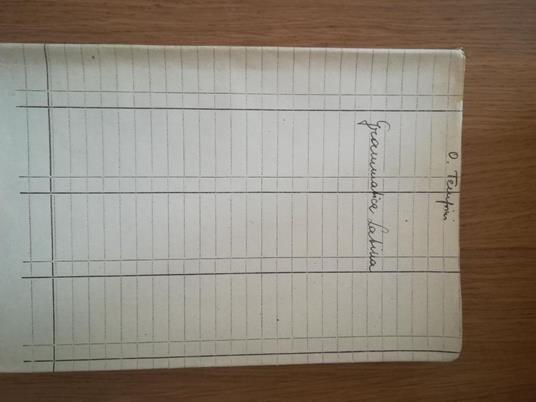 O. Tempini
Grammatica Latina